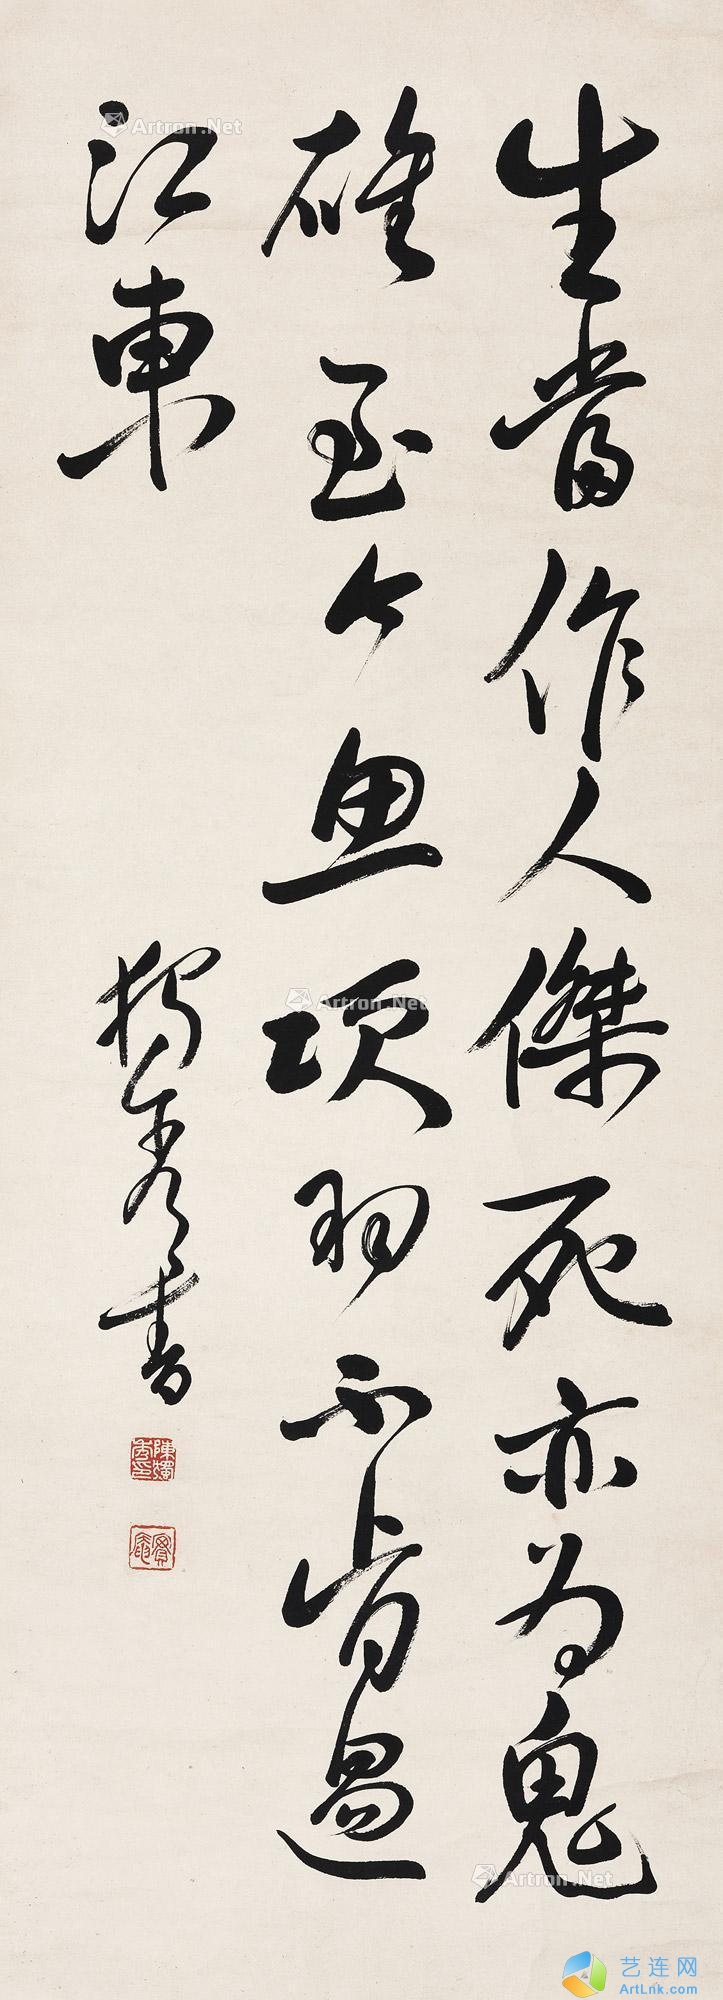 生當作人傑死亦為鬼
雄至今思項羽不肯過
江東
獨秀書
陳獨秀印
實庵
Artron.Net
Artron.Net
Artron.Net
Artron.Net
艺连网
ArtLnk.com